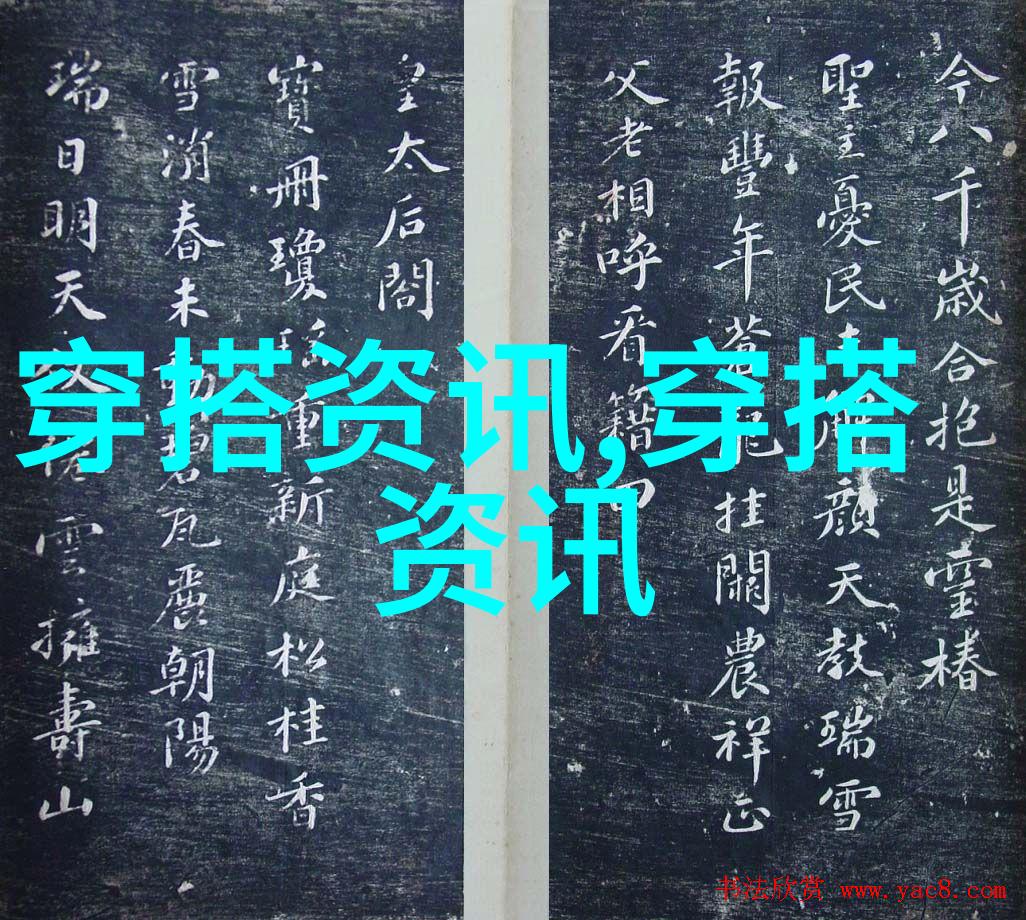 今八千歲合抱是靈椿
聖主憂民解顏天教瑞雪
報豐年蒼挂闕農祥正
父老相呼看籍田
皇太后閤
寶冊瓊重新庭松桂香
雪消春未動碧瓦麗朝陽
瑞日明天雲擁壽山
穿搭资讯,穿搭
资讯
书法欣赏 www.yac8.com